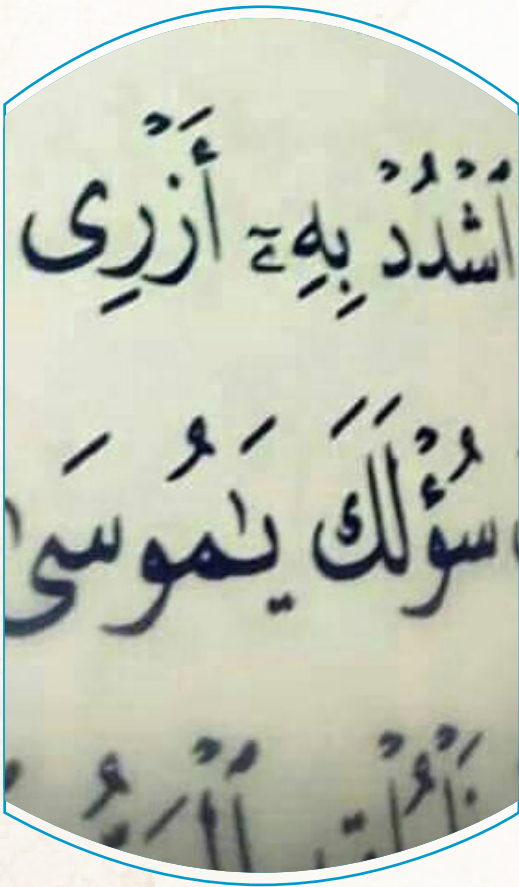 ٱشْدُدْ بِهِۦٓ أَزْرِى
سُؤْلَكَ يَٰمُوسَىٰ